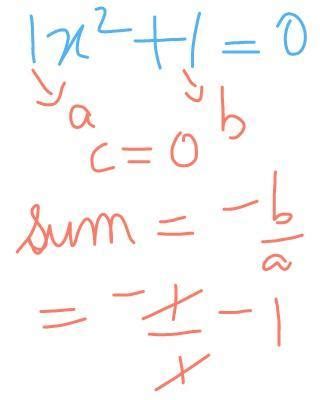 1x² + 1 = 0
a b
c = 0
sum = -b/a
= -1/1 - 1